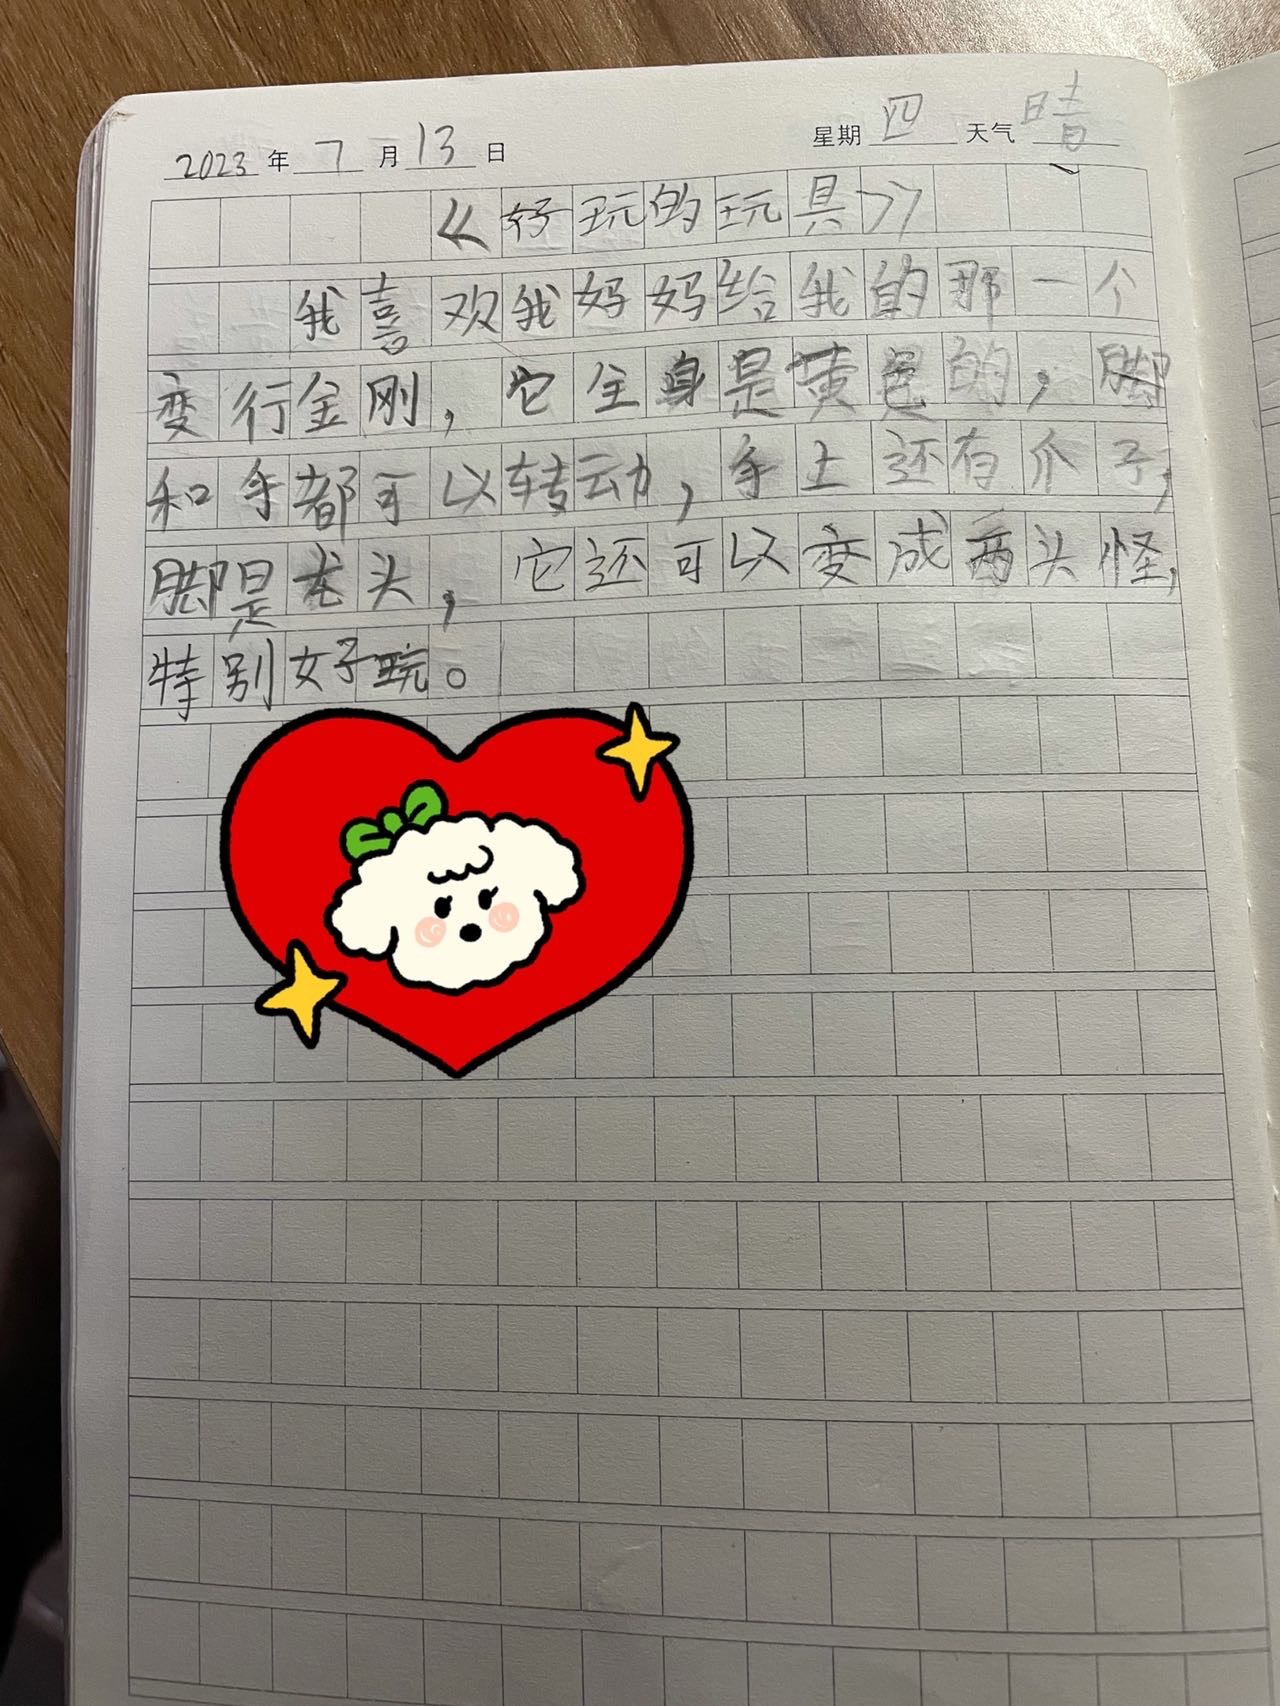 2023年7月13日 星期四 天气晴
《好玩的玩具》
我喜欢我妈妈给我的那一个
变行金刚，它全身是黄色的，脚
和手都可以转动，手上还有爪子，
脚是龙头，它还可以变成两头怪，
特别好玩。